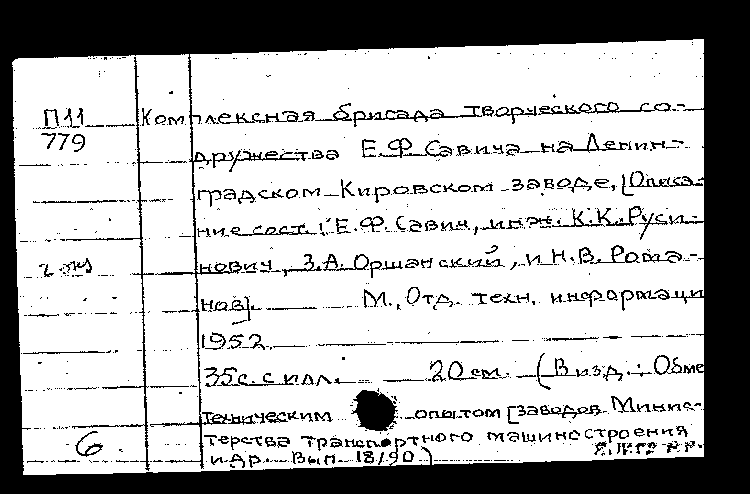 П11
779
Комплексная бригада творческого со-
дружества Е.Ф. Савича на Ленин-
градском Кировском заводе, [Описа-
ние сост.: Е.Ф. Савич, инж. К.К. Руси-
нович, З.А. Оршанский, и Н.В. Рома-
нов].   М., Отд. техн. информаци
1952.
35с. с илл.   20 см. (В изд.: Обме
техническим опытом [заводов Минис-
терства транспортного машиностроения
и др. Вып. 18/90)
6